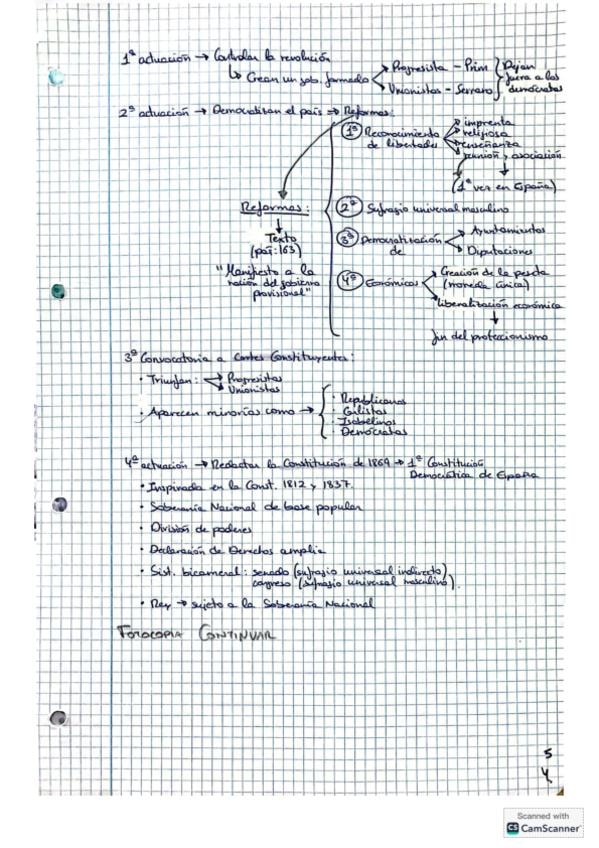 1ª actuación → Controlar la revolución
↳ Crean un gob. formado
Progresista - Prim
Unionistas - Serrano
Dejan fuera a los demócratas
2ª actuación → Democratizan el país ⇒ Reformas:
1ª Reconocimiento de libertades
imprenta
religiosa
enseñanza
reunión y asociación
(1ª vez en España)
Reformas:
Texto
(pág: 163)
"Manifiesto a la
nación del gobierno
provisional"
2ª Sufragio universal masculino
3ª Democratización de
Ayuntamientos
Diputaciones
4ª Económicas
Creación de la peseta
(moneda única)
liberalización económica
fin del proteccionismo
3ª Convocatoria a Cortes Constituyentes:
· Triunfan: → Progresistas
→ Unionistas
· Aparecen minorías como →
· Republicanos
· Carlistas
· Isabelinos
· Demócratas
4ª actuación → Redactar la Constitución de 1869 → 1ª Constitución
Democrática de España
· Inspirada en la Const. 1812 y 1837.
· Soberanía Nacional de base popular
· División de poderes
· Declaración de Derechos amplia
· Sist. bicameral: senado (sufragio universal indirecto)
congreso (sufragio universal masculino).
· Rey → sujeto a la Soberanía Nacional
FOTOCOPIA CONTINUAR
5
4
Scanned with
CS CamScanner